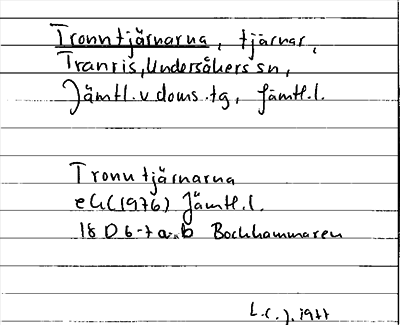 Tronntjärnarna, tjärnar,
Tranris, Undersåkers sn,
Jämtl.v doms.tg, Jämtl.l.
Tronntjärnarna
ek (1976) Jämtl.l.
18 D 6-7 a-b Bockhammaren
L.C.J. 1977